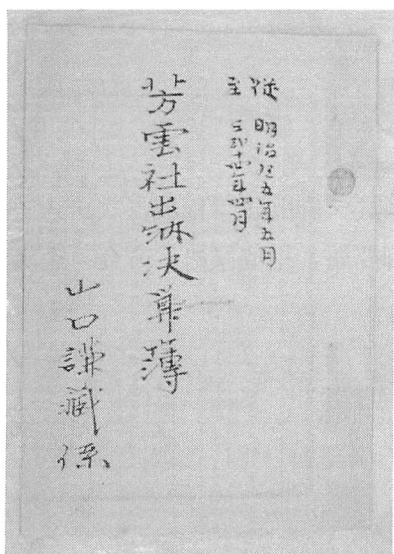 従 明治廿五年五月
至 弐十 年四月
芳雲社出納決算簿
山口謙蔵係